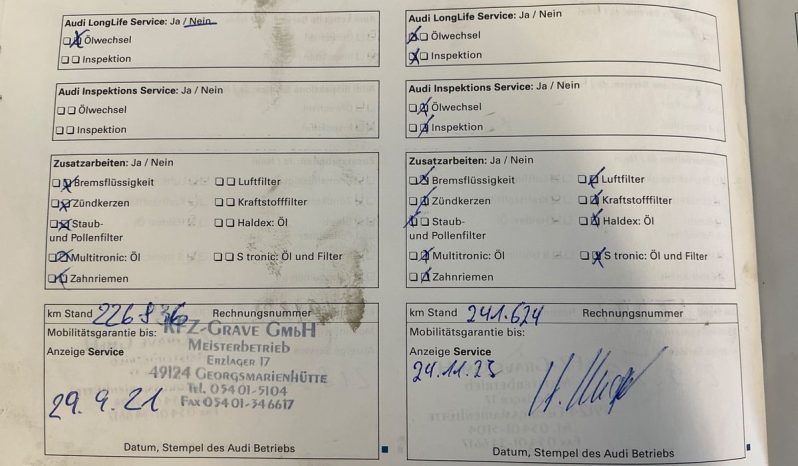 Audi LongLife Service: Ja / Nein
Ölwechsel
Inspektion
Audi Inspektions Service: Ja / Nein
Ölwechsel
Inspektion
Zusatzarbeiten: Ja / Nein
Bremsflüssigkeit Luftfilter
Zündkerzen Kraftstofffilter
Staub- Haldex: Öl
und Pollenfilter
Multitronic: Öl S tronic: Öl und Filter
Zahnriemen
km Stand Rechnungsnummer
Mobilitätsgarantie bis:
KFZ-GRAVE GMBH
MEISTERBETRIEB
Anzeige Service
ERZLAGER 17
49124 GEORGSMARIENHÜTTE
Tel. 05401-5104
FAX 05401-346617
29.9.21
Datum, Stempel des Audi Betriebs
Audi LongLife Service: Ja / Nein
Ölwechsel
Inspektion
Audi Inspektions Service: Ja / Nein
Ölwechsel
Inspektion
Zusatzarbeiten: Ja / Nein
Bremsflüssigkeit Luftfilter
Zündkerzen Kraftstofffilter
Staub- Haldex: Öl
und Pollenfilter
Multitronic: Öl S tronic: Öl und Filter
Zahnriemen
km Stand 241.624 Rechnungsnummer
Mobilitätsgarantie bis:
Anzeige Service
24.11.23
Datum, Stempel des Audi Betriebs